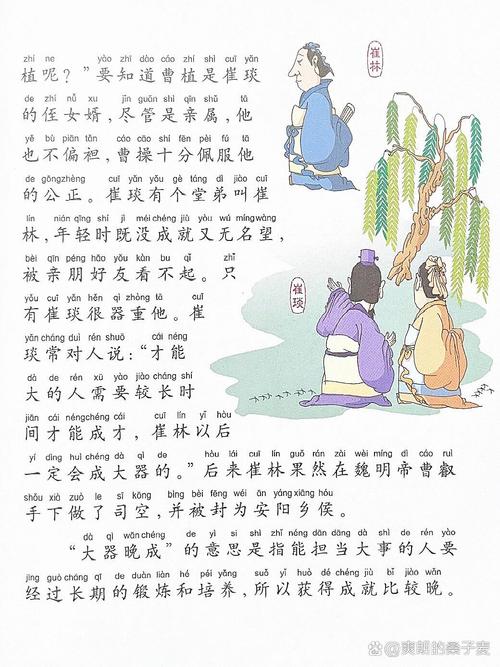 zhí ne yào zhī dào cáo zhí shì cuī yǎn
植呢？”要知道曹植是崔琰
de zhí nǚ xu jǐn guǎn shì qīn shǔ tā
的侄女婿，尽管是亲属，他
yě bù piān tǎn cáo cāo shí fēn pèi fú tā
也不偏袒，曹操十分佩服他
de gōngzhèng cuī yǎn yǒu gè táng dì jiào cuī
的公正。崔琰有个堂弟叫崔
lín nián qīng shí jì méi chéng jiù yòu wú míngwàng
林，年轻时既没成就又无名望，
bèi qīn péng hǎo yǒu kàn bu qǐ zhǐ
被亲朋好友看不起。只
yǒu cuī yǎn hěn qì zhòng tā cuī
有崔琰很器重他。崔
yǎn cháng duì rén shuō cái néng
琰常对人说：“才能
dà de rén xū yào jiào cháng shí
大的人需要较长时
jiān cái néng chéng cái cuī lín yǐ hòu
间才能成才，崔林以后
yí dìng huì chéng dà qì de hòu lái cuī lín guǒ rán zài wèi míng dì cáo ruì
一定会成大器的。”后来崔林果然在魏明帝曹叡
shǒu xià zuò le sī kōng bìng bèi fēng wéi ān yáng xiāng hóu
手下做了司空，并被封为安阳乡侯。
dà qì wǎn chéng de yì si shì zhǐ néng dān dāng dà shì de rén yào
“大器晚成”的意思是指能担当大事的人要
jīng guò cháng qī de duàn liàn hé péi yǎng suǒ yǐ huò dé chéng jiù bǐ jiào wǎn
经过长期的锻炼和培养，所以获得成就比较晚。
崔林
崔琰
@爽朗的桑子麦